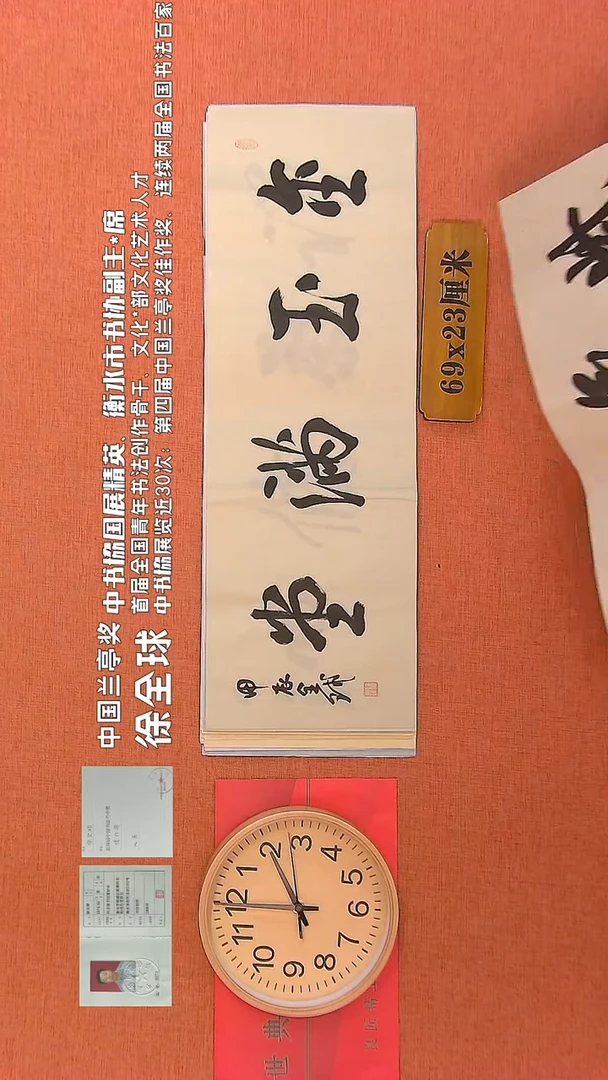 中国兰亭奖 中书協国展精英、衡水市书协副主*席
首届全国青年书法创作骨干、文化*部文化艺术人才
徐全球 中书協展览近30次：第四届中国兰亭奖佳作奖、连续两届全国书法百家
金玉满堂
甲辰全球
69x23厘米
12
1
2
3
4
5
6
7
8
9
10
11
世典